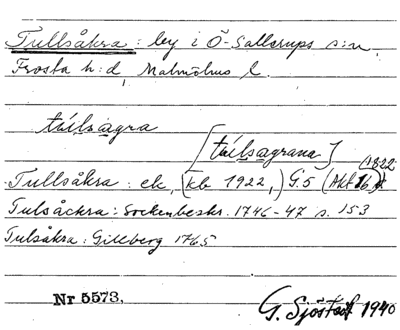 Tullsåkra: by i Ö-Sallerups s:n.
Frosta h:d, Malmöhus l.
túlsagra
[túlsagrana]
Tullsåkra: ek. (kb 1922,) G.5 (Akt 16) 1822
Tulsåckra: Sockenbeskr. 1746-47 s. 153
Tulsåkra: Gillberg 1765
Nr 5573. G. Sjöstedt 1940